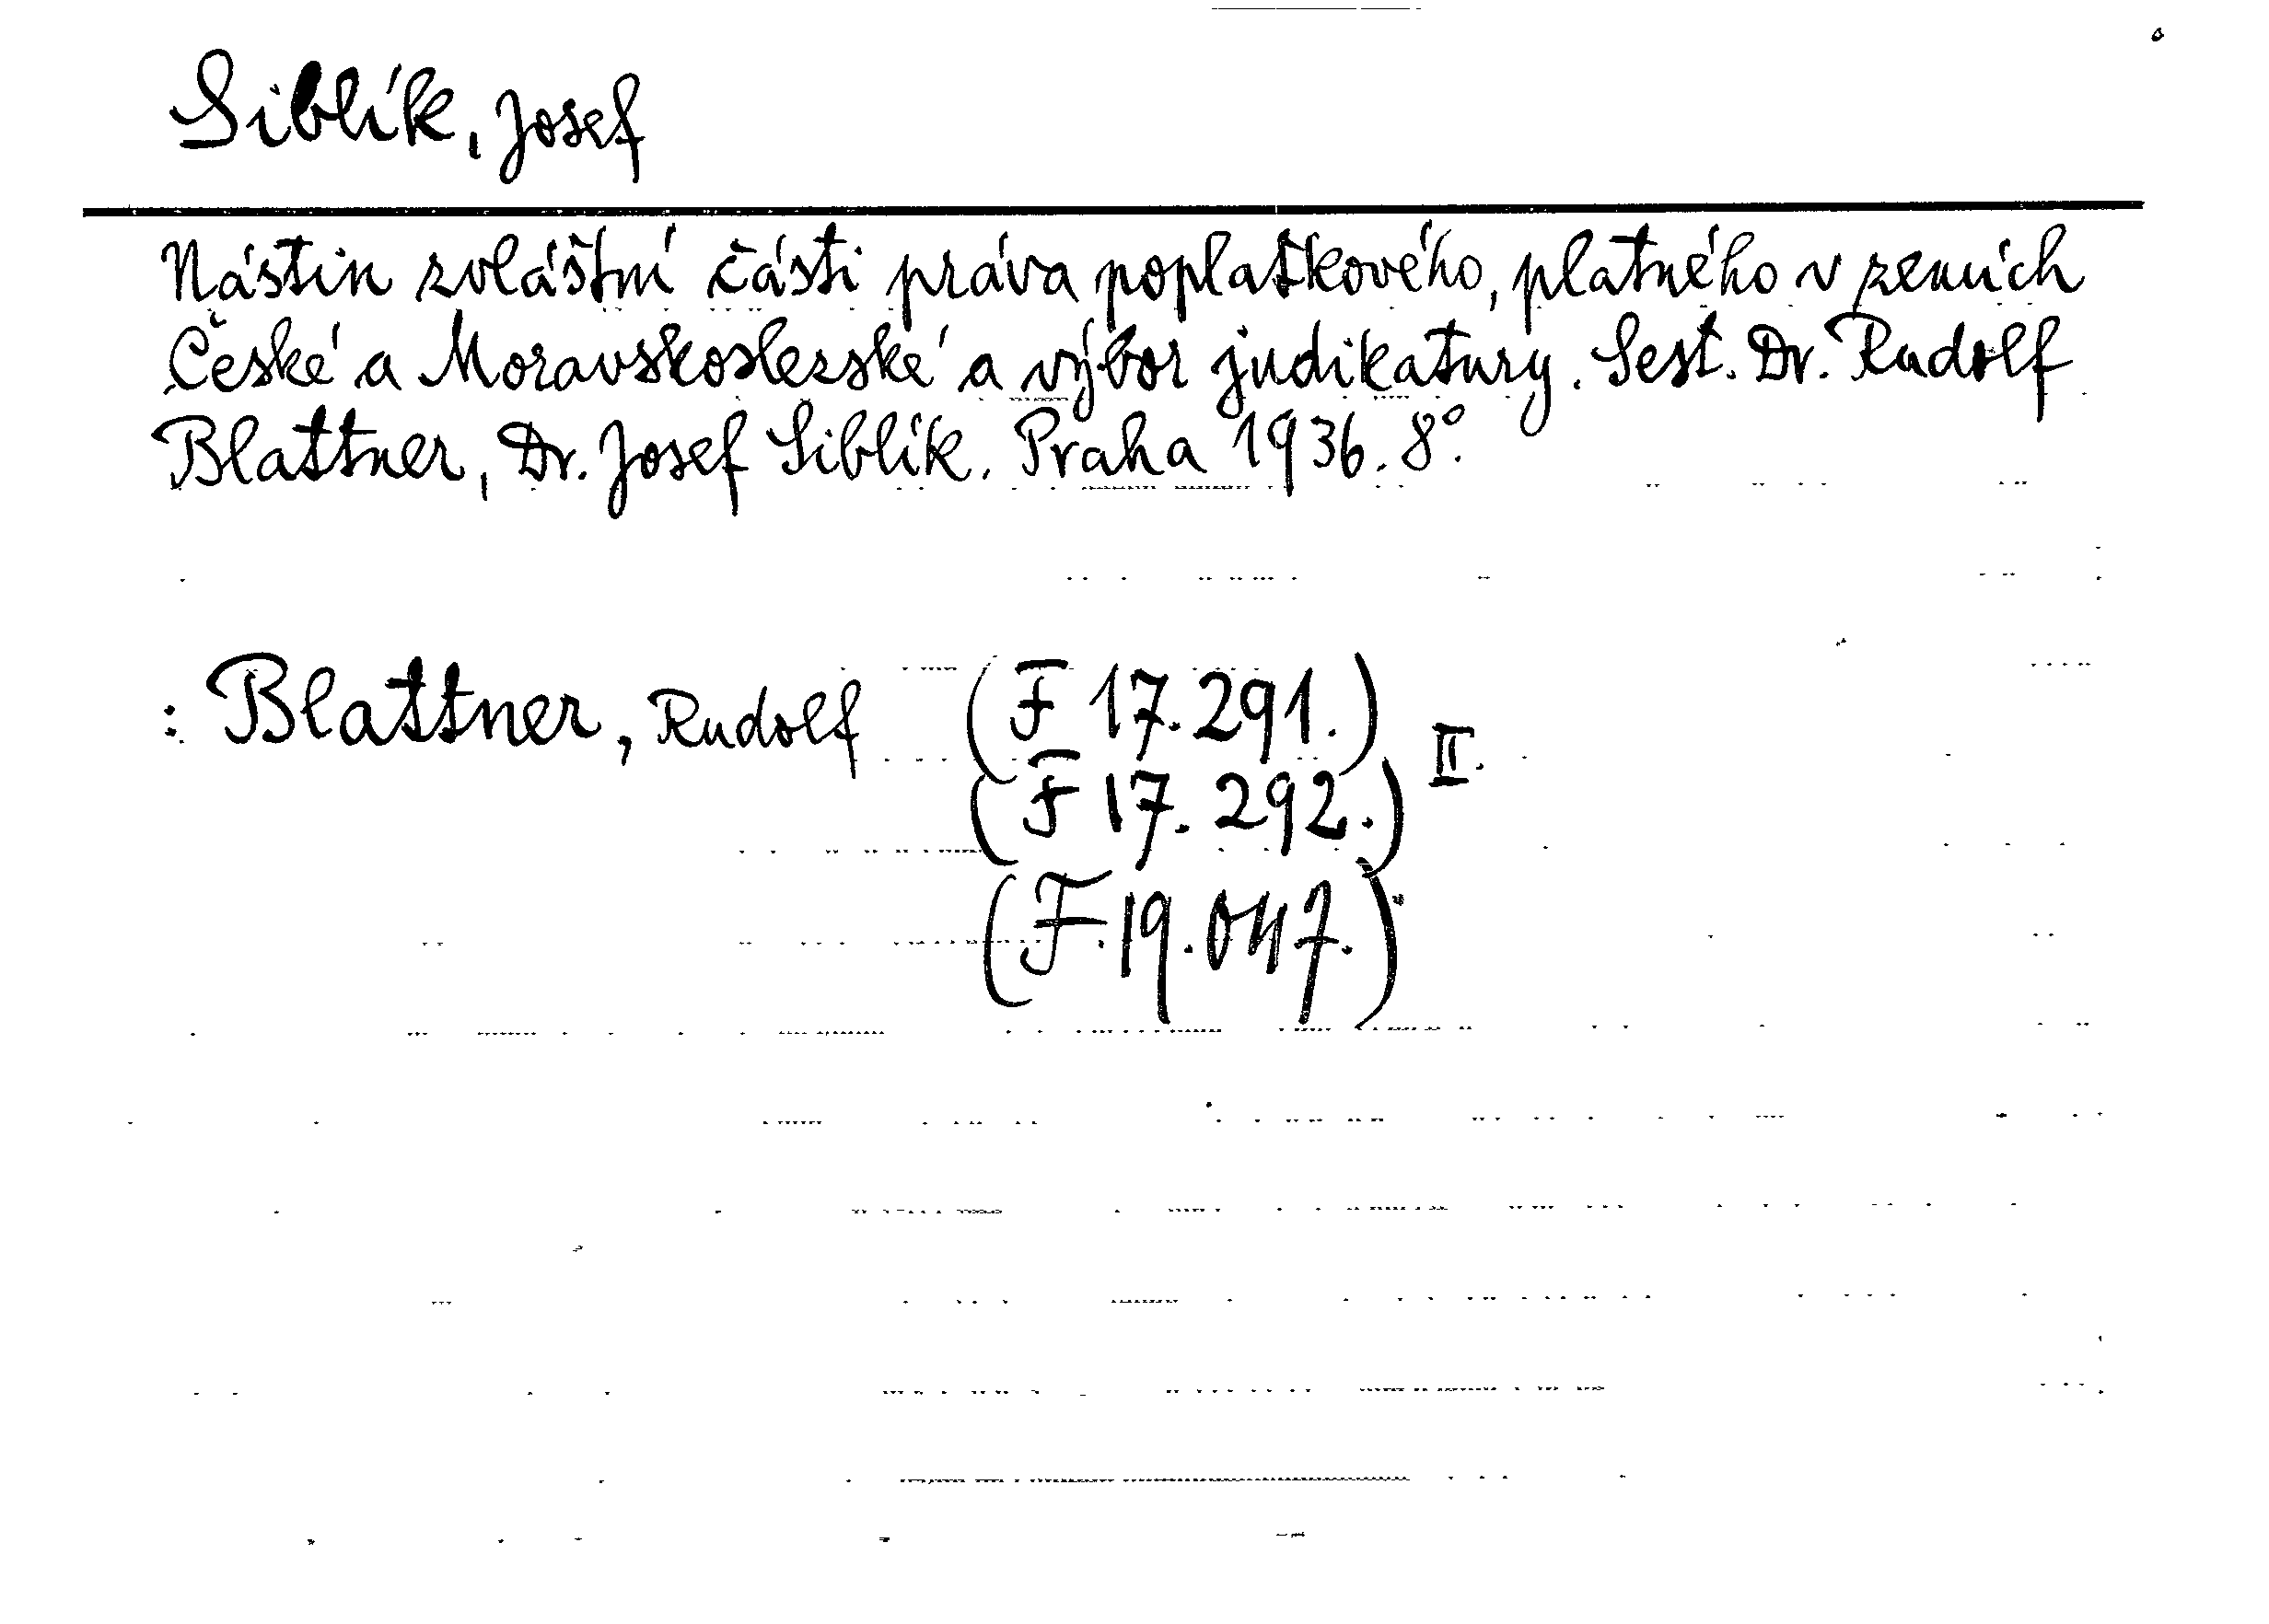 Siblík, Josef
Nástin zvláštní části práva poplatkového, platného v zemích
České a Moravskoslezské a výbor judikatury. Sest. Dr. Rudolf
Blattner, Dr. Josef Siblík. Praha 1936. 8°.
: Blattner, Rudolf (F 17.291.) II.
(F 17.292.)
(F.19.047.)